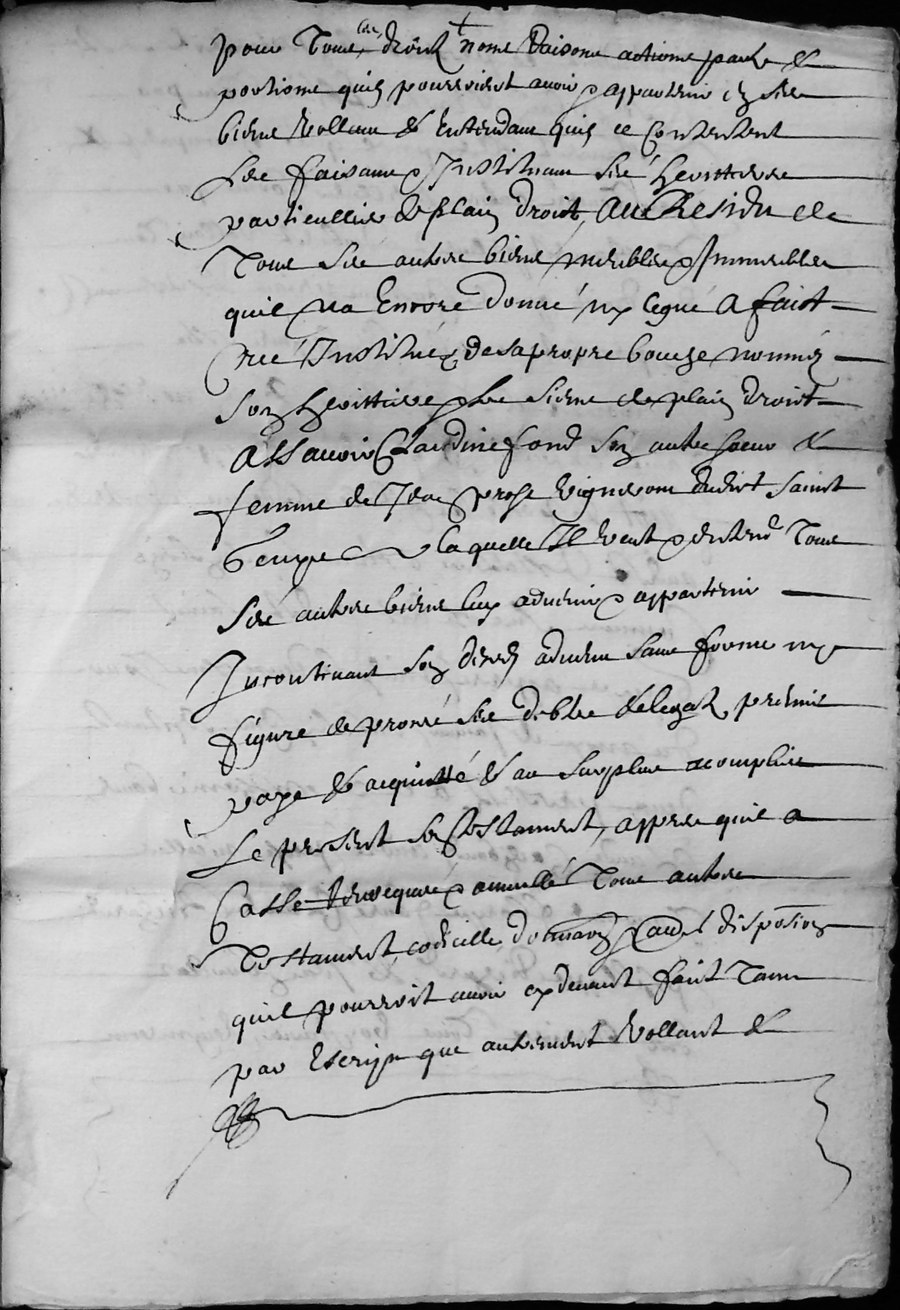 pour tous les droictz noms raisons actions partz &
portions quilz pourroient avoir & appartenir en ses
biens vollant & entendant quilz ce contentent
Les faisant & Instituant ses herittiers
particulliers de plain droit, Au Residu de
Tous ses autres biens meubles & Immeubles
quil na Encore donné ny legué A faict
creé Institué & de sa propre bouche nommé
son herittiere & les siens de plain droict
Assavoir Claudine fond sa autre soeur &
femme de Jean vigneron dudict Sainct
laquelle Il veut & entend Tous
ses autres biens luy advenir & appartenir
Incontinant son deces advenu sans forme ny
figure de proces ses debtes & legatz premis
paye & acquitté & au surplus acomplir
Le present son Testament, appres quil a
Casse Revoque & annullé Tous autres
Testament, codicille, donnation & autres disposition
quil pourroit avoir cydevant faict Tant
par Escript que autrement Vollant &